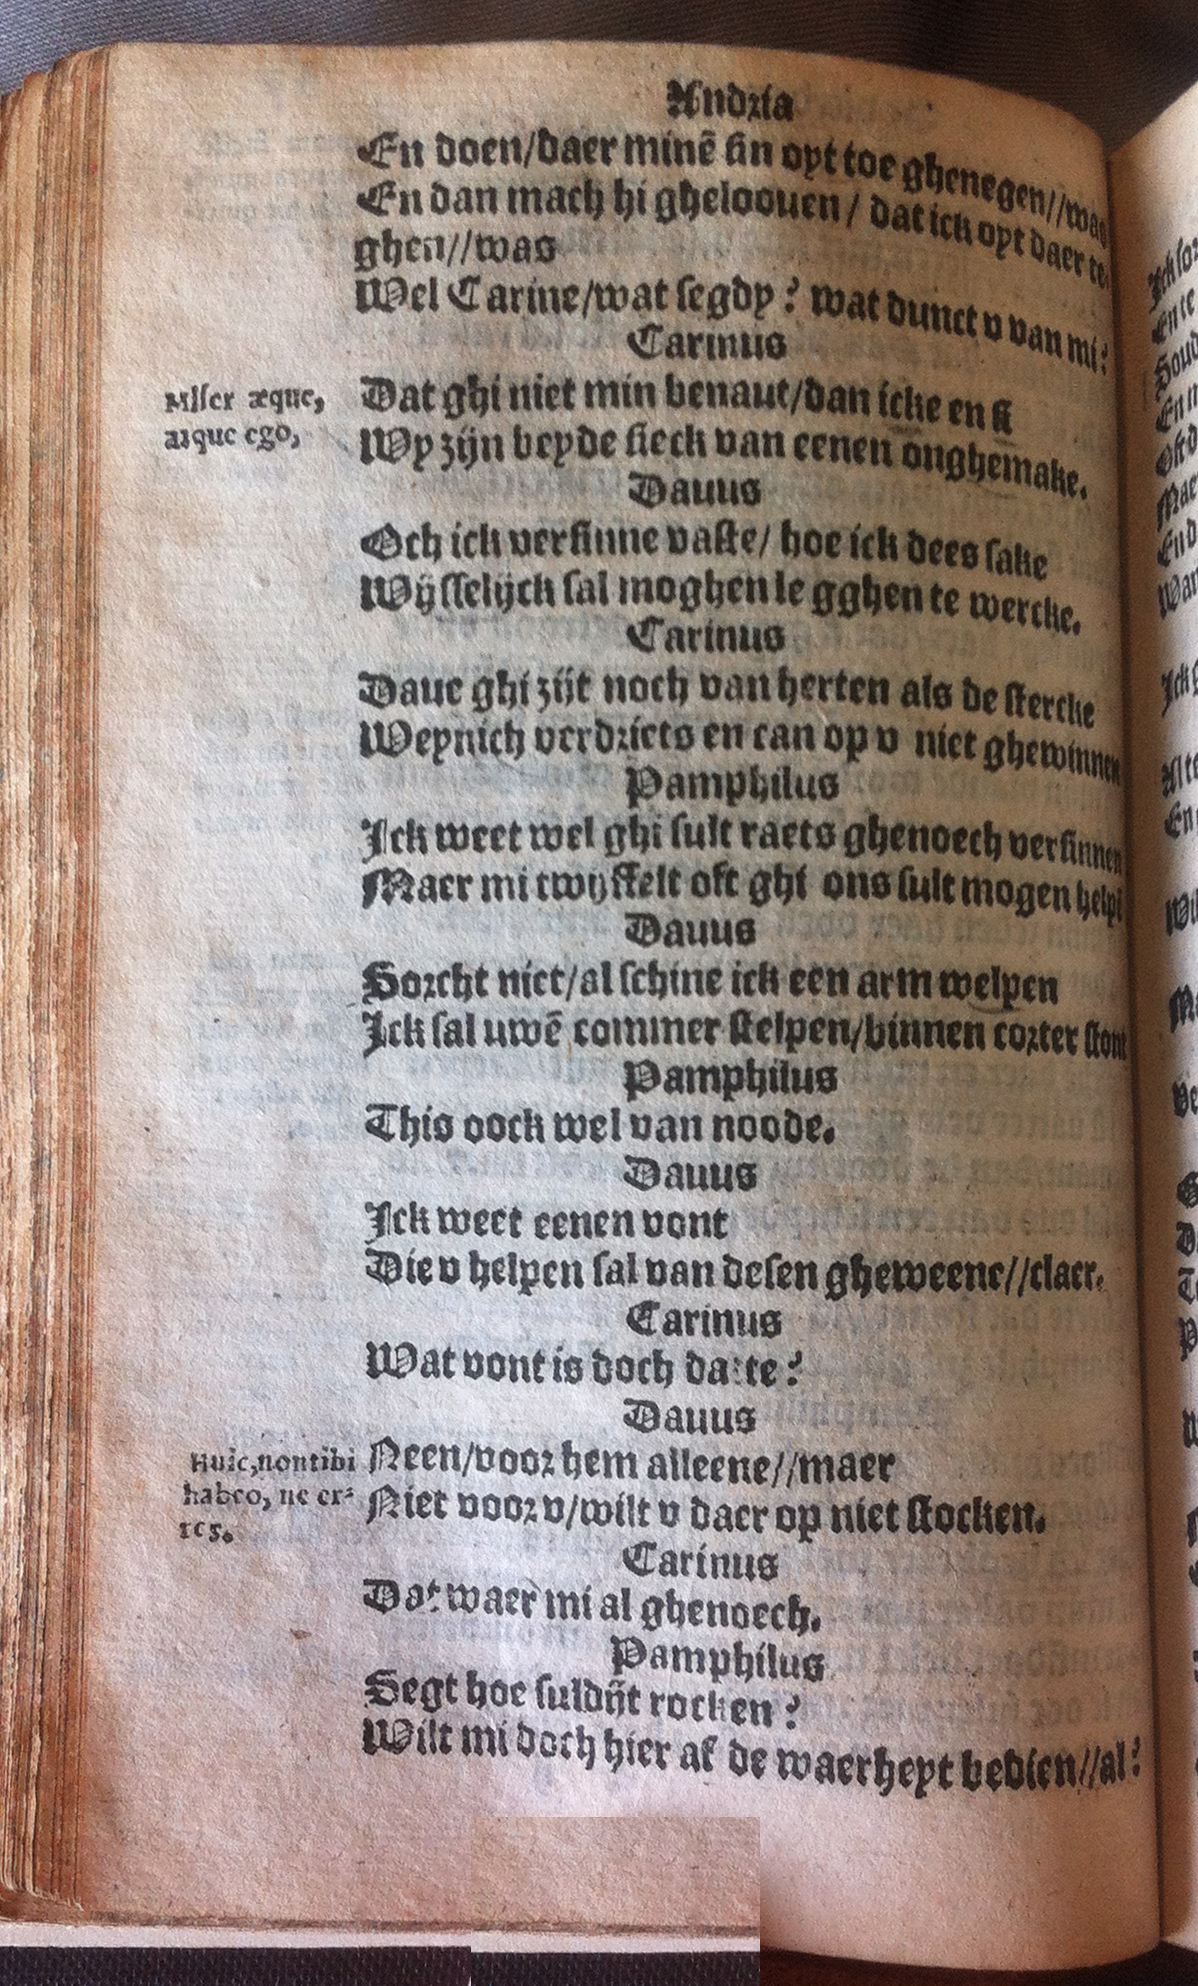 Andria
En doen/daer minē sin oyt toe ghenegen//was
En dan mach hi ghelooven / dat ick oyt daer te
ghen//was
Wel Carine/wat segdy? wat dunct v van mi?
Carinus
Miser æque,
atque ego,
Dat ghi niet min benaut/dan icke en si
Wy zijn beyde sieck van eenen onghemake.
Dauus
Och ick versinne vaste/ hoe ick dees sake
Wijsselijck sal moghen le gghen te wercke.
Carinus
Daue ghi zijt noch van herten als de stercke
Weynich verdriets en can op v niet ghewinnen
Pamphilus
Ick weet wel ghi sult raets ghenoech versinnen
Maer mi twijffelt oft ghi ons sult mogen helpē
Dauus
Sorcht niet/al schine ick een arm welpen
Ick sal uwē commer stelpen/binnen corter stont
Pamphilus
This oock wel van noode.
Dauus
Ick weet eenen vont
Die v helpen sal van desen gheweene//claer.
Carinus
Wat vont is doch datte?
Dauus
Huic,non tibi
habeo, ne er-
res.
Neen/voor hem alleene//maer
Niet voor v/wilt v daer op niet stocken.
Carinus
Dat waer mi al ghenoech.
Pamphilus
Segt hoe suldijt rocken?
Wilt mi doch hier af de waerheyt bedien//al?